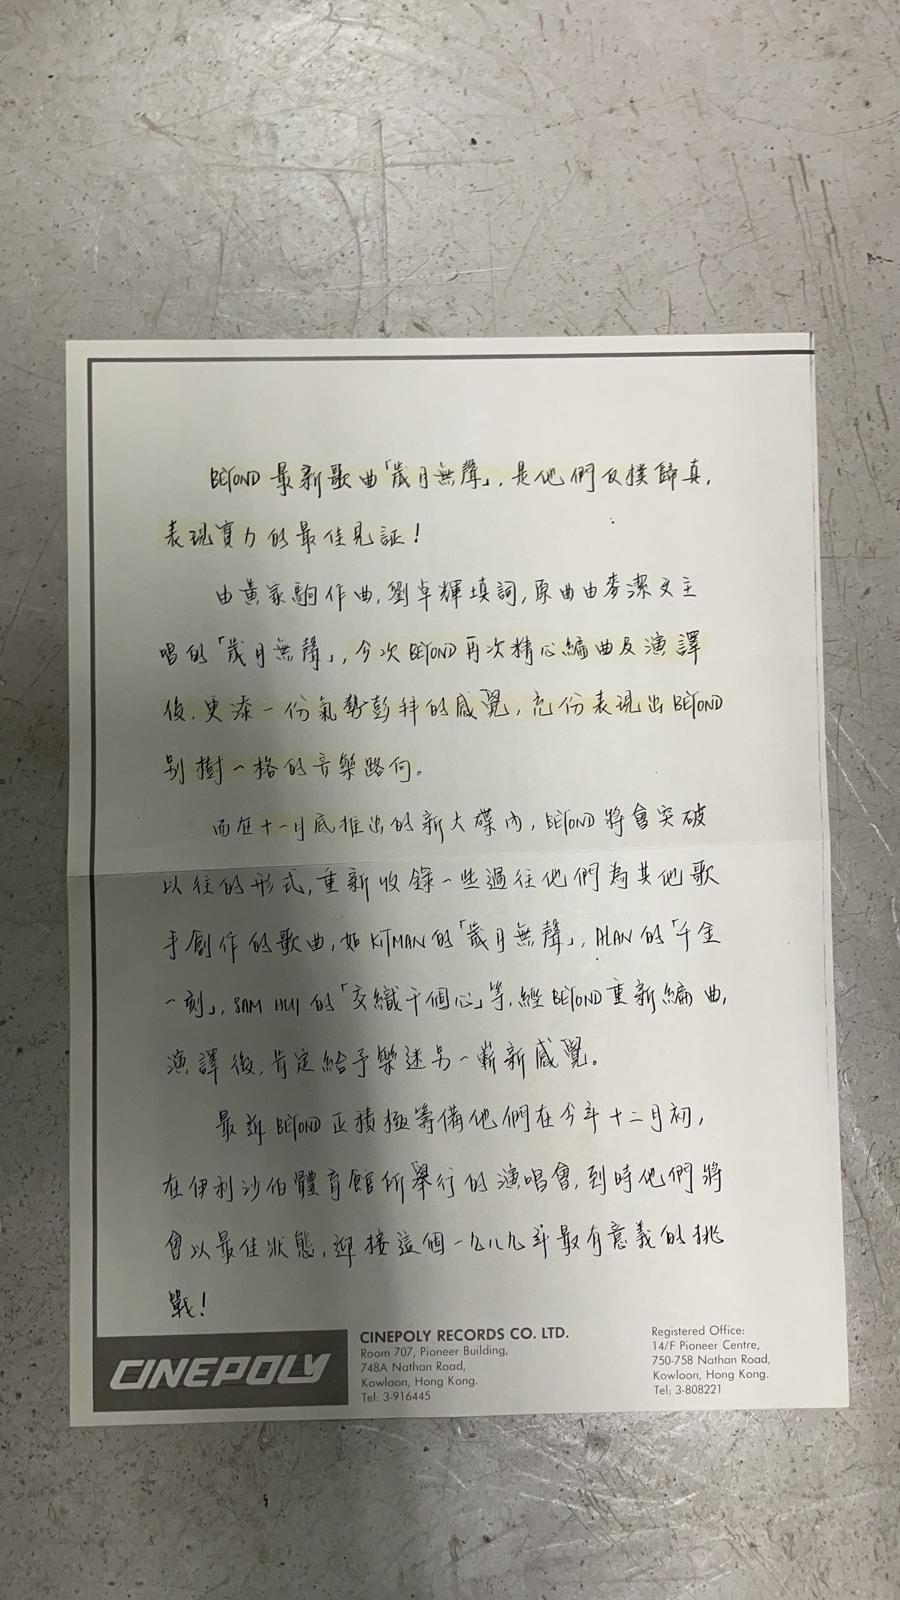 BEYOND 最新歌曲「歲月無聲」，是他們反樸歸真，
表現實力的最佳見証！
由黃家駒作曲，劉卓輝填詞，原曲由麥潔文主
唱的「歲月無聲」，今次BEYOND再次精心編曲及演譯
後，更添一份氣勢彭拜的感覺，充份表現出BEYOND
別樹一格的音樂路向。
而在十一月底推出的新大碟內，BEYOND將會突破
以往的形式，重新收錄一些過往他們為其他歌
手創作的歌曲，如KITMAN的「歲月無聲」，ALAN的「千金
一刻」，SAM HUI 的「交織千個心」等，經BEYOND重新編曲，
演譯後，肯定給予樂迷另一嶄新感覺。
最近BEYOND正積極籌備他們在今年十二月初，
在伊利沙伯體育館所舉行的演唱會，到時他們將
會以最佳狀態，迎接這個一九八九年最有意義的挑
戰！
CINEPOLY
CINEPOLY RECORDS CO. LTD.
Room 707, Pioneer Building,
748A Nathan Road,
Kowloon, Hong Kong.
Tel: 3-916445
Registered Office:
14/F Pioneer Centre,
750-758 Nathan Road,
Kowloon, Hong Kong.
Tel: 3-808221